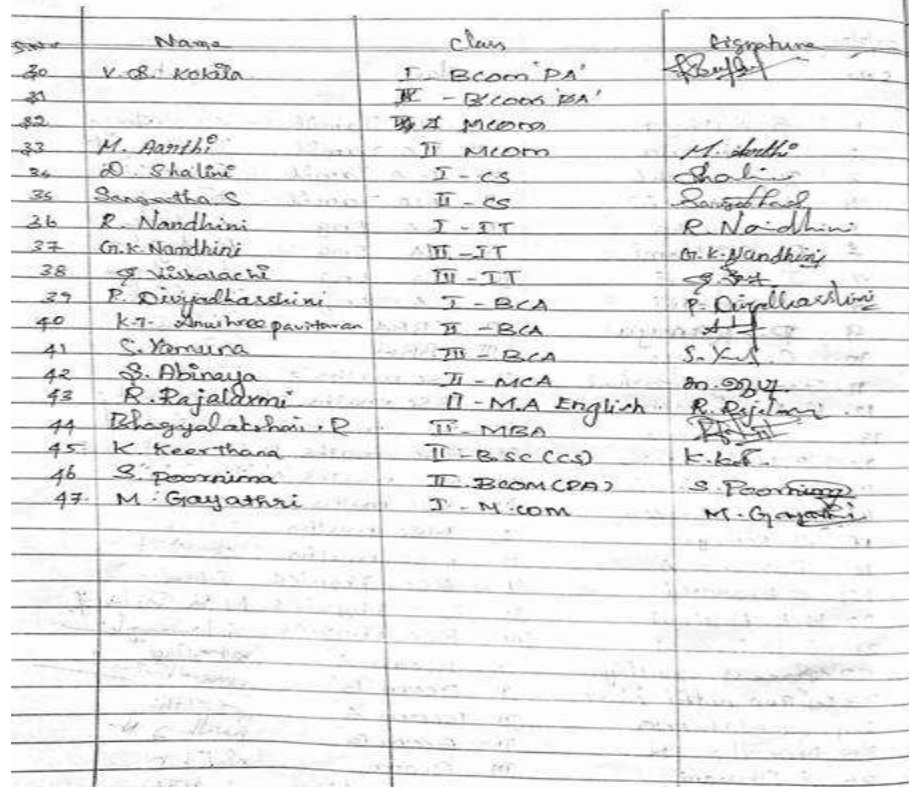 S.No Name Class Signature
30 V. B. Kokila I BCom 'PA'
31 II - B'Com 'PA'
32 I MCom
33 M. Aarthi II MCom M. Aarthi
34 D. Shalini I - CS Shalini
35 Sangeetha S II - CS
36 R. Nandhini I - IT R. Nandhini
37 G.K. Nandhini II - IT G.K. Nandhini
38 III - IT
39 P. Divyadharshini I - BCA P. Divyadharshini
40 II - BCA
41 S. Yamuna III - BCA
42 S. Abinaya II - MCA
43 R. Rajalaxmi II - M.A English
44 Bhagyalakshmi . R II - MBA
45. K. Keerthana II - B.SC (CS)
46 S. Poornima II BCOM (PA) S. Poornima
47. M. Gayathri I - M.com M. Gayathri